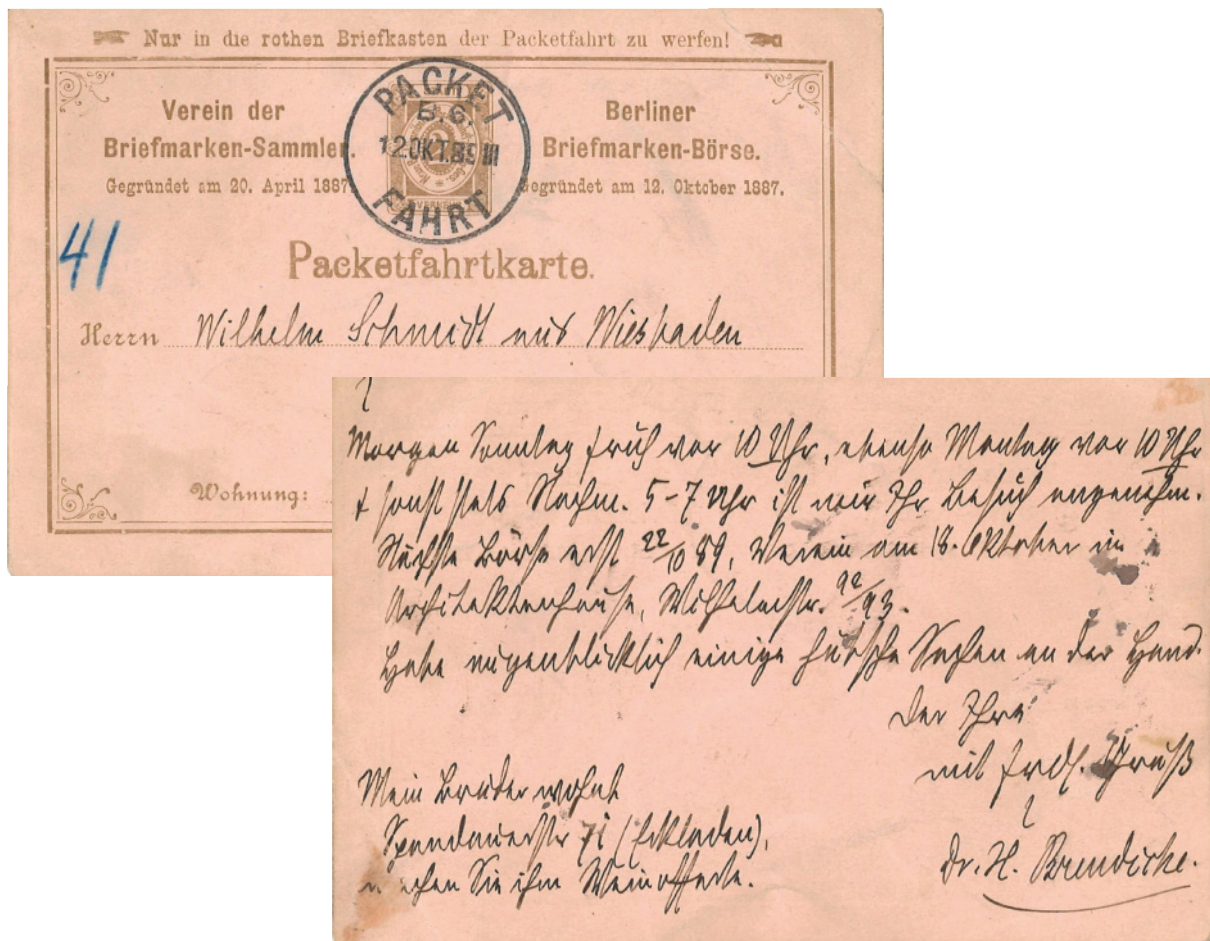 Nur in die rothen Briefkasten der Packetfahrt zu werfen!
Verein der
Briefmarken-Sammler.
Gegründet am 20. April 1887.
PACKET
B.6.
12OKT.89 III
FAHRT
2
VERKEHR
Berliner
Briefmarken-Börse.
Gegründet am 12. Oktober 1887.
41
Packetfahrtkarte.
Herrn Wilhelm Schmidt aus Wiesbaden
Wohnung:
Morgen Sonntag früh vor 10 Uhr, ebenso Montag vor 10 Uhr
+ sonst stets Nachm. 5-7 Uhr ist mir Ihr Besuch angenehm.
Nächste Börse erst 22/10 89, Verein am 18. Oktober im
Architektenhause, Wilhelmstr. 92/93.
Habe augenblicklich einige hübsche Sachen an der Hand.
Der Ihre
mit frdl. Gruß
Dr. H. Brendicke.
Mein Bruder wohnt
Spandauerstr 71 (Eckladen),
machen Sie ihm Weinofferte.